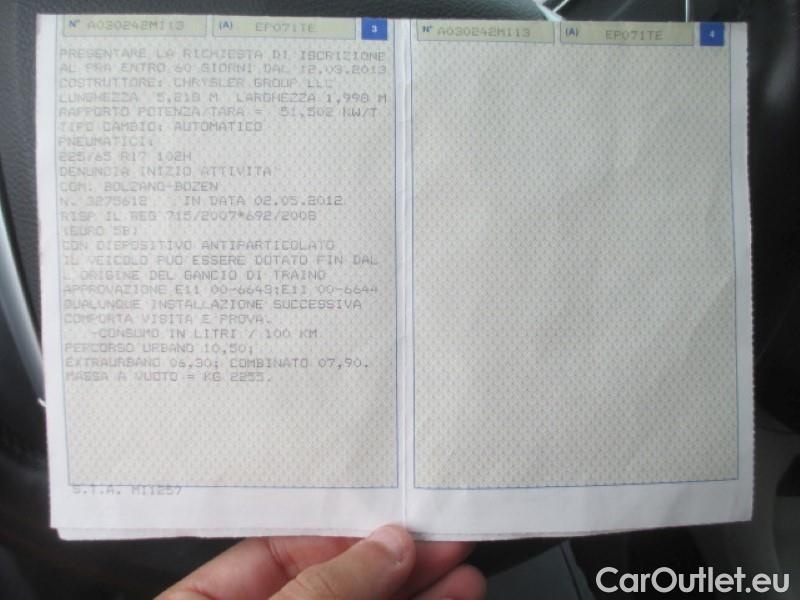 N° A030242MI13 (A) EP071TE 3
PRESENTARE LA RICHIESTA DI ISCRIZIONE
AL PRA ENTRO 60 GIORNI DAL 12.03.2013
COSTRUTTORE: CHRYSLER GROUP LLC
LUNGHEZZA 5,218 M LARGHEZZA 1,998 M
RAPPORTO POTENZA/TARA = 51,502 KW/T
TIPO CAMBIO: AUTOMATICO
PNEUMATICI:
225/65 R17 102H
DENUNCIA INIZIO ATTIVITA'
COM: BOLZANO-BOZEN
N. 3275612 IN DATA 02.05.2012
RISP IL REG 715/2007*692/2008
(EURO 5B)
CON DISPOSITIVO ANTIPARTICOLATO
IL VEICOLO PUO'ESSERE DOTATO FIN DAL
L'ORIGINE DEL GANCIO DI TRAINO
APPROVAZIONE E11 00-6643;E11 00-6644
QUALUNQUE INSTALLAZIONE SUCCESSIVA
COMPORTA VISITA E PROVA.
-CONSUMO IN LITRI / 100 KM
PERCORSO URBANO 10,50;
EXTRAURBANO 06,30; COMBINATO 07,90.
MASSA A VUOTO = KG 2255.
S.T.A. MI1257
N° A030242MI13 (A) EP071TE 4
CarOutlet.eu